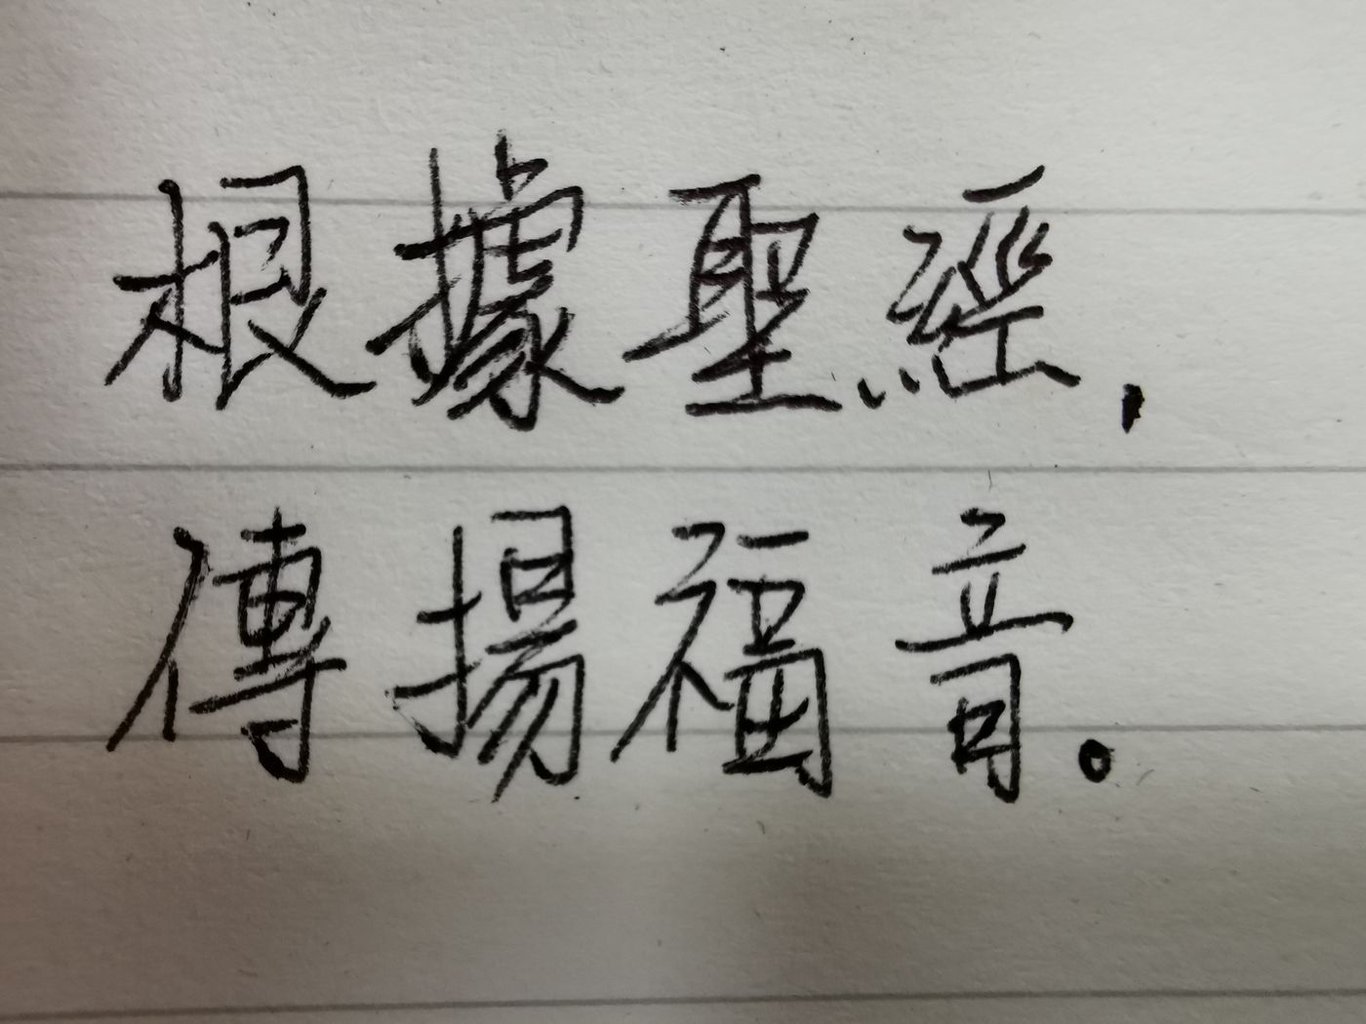 根據聖經,
傳揚福音。